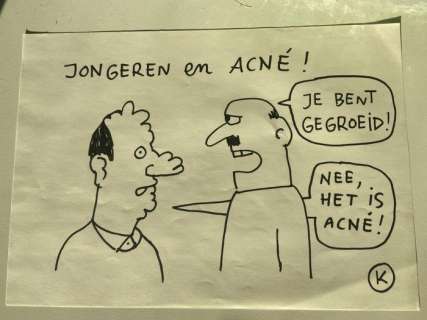 JONGEREN en ACNÉ!
JE BENT
GEGROEID!
NEE,
HET IS
ACNÉ!
K